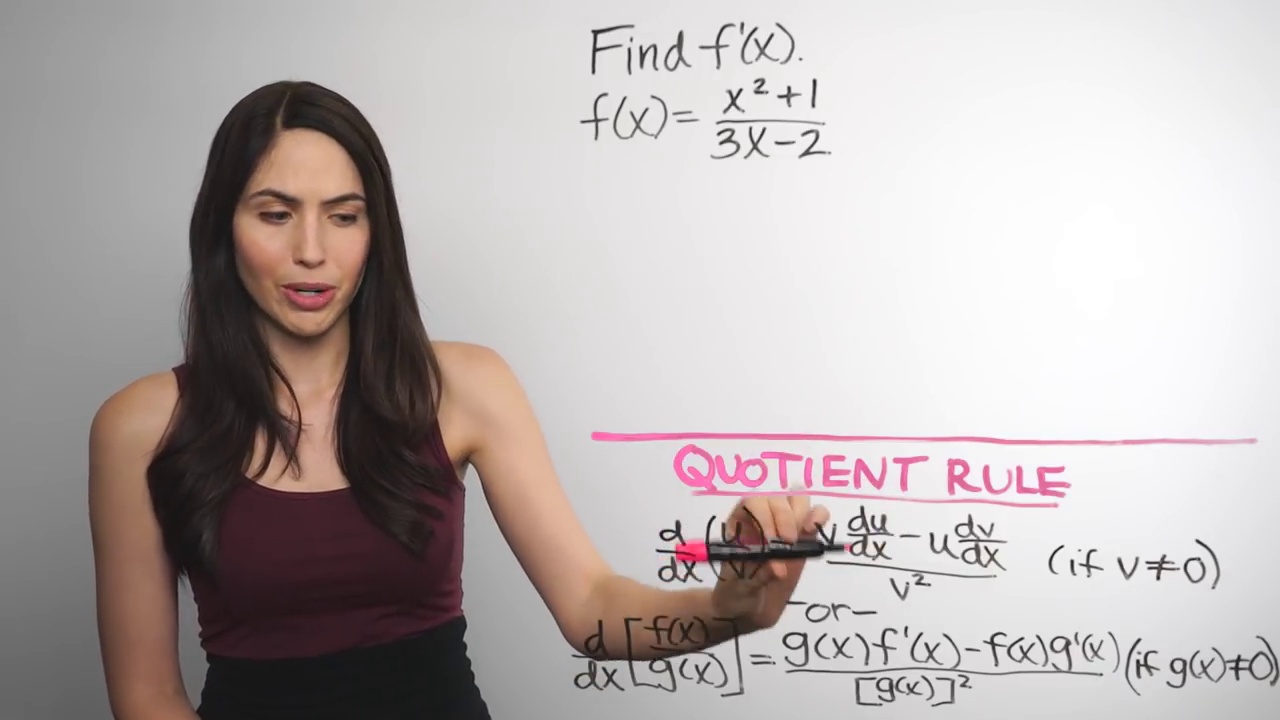 Find f'(x).
f(x) = \frac{x^2+1}{3x-2}
QUOTIENT RULE
\frac{d}{dx}(\frac{u}{v}) = \frac{v\frac{du}{dx} - u\frac{dv}{dx}}{v^2} (if v≠0)
-or-
\frac{d}{dx}[\frac{f(x)}{g(x)}] = \frac{g(x)f'(x) - f(x)g'(x)}{[g(x)]^2} (if g(x)≠0)